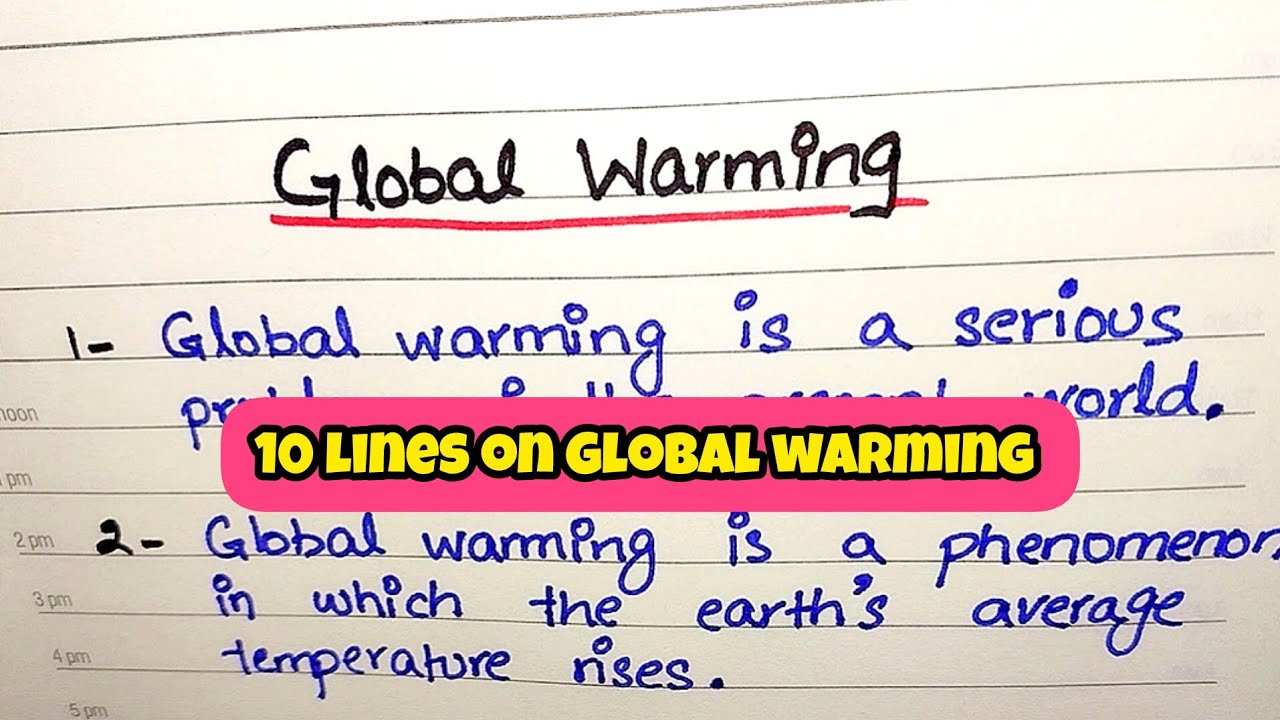 Global Warming
1- Global warming is a serious
world.
noon
10 Lines on Global Warming
pm
2 pm 2- Global warming is a phenomenon
3 pm in which the earth's average
4 pm temperature rises.
5 pm